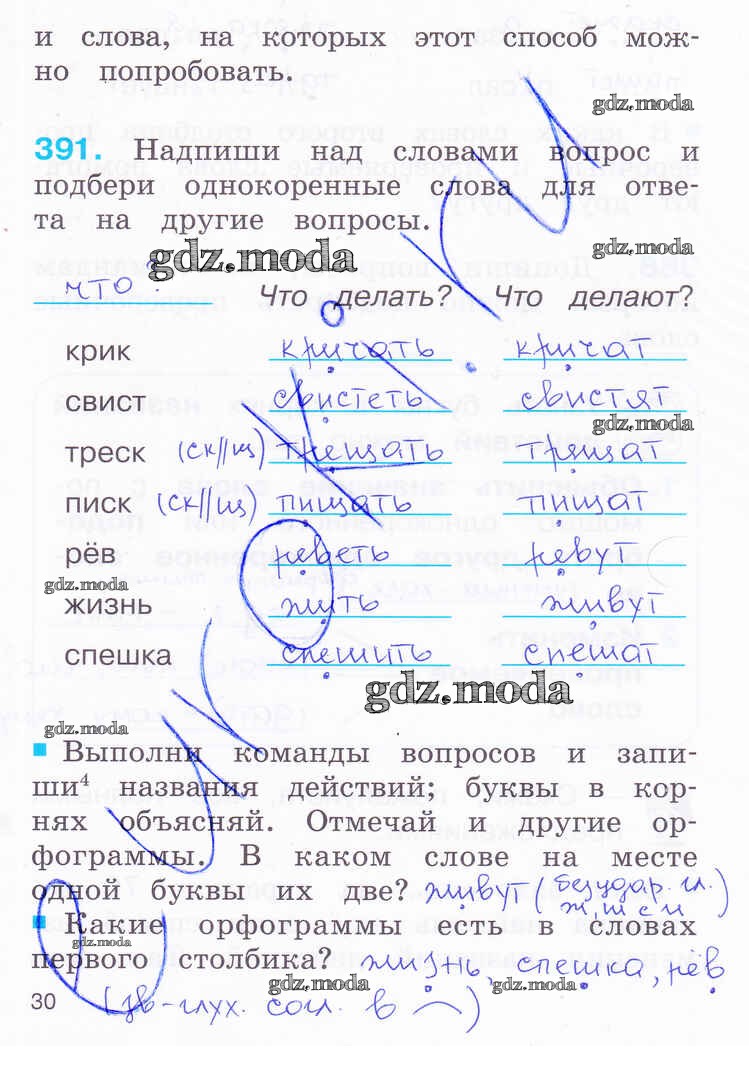 и слова, на которых этот способ мож-
но попробовать.
gdz.moda
391. Надпиши над словами вопрос и
подбери однокоренные слова для отве-
та на другие вопросы.
gdz.moda
gdz.moda
что? Что делать? Что делают?
крик кричать кричат
свист свистеть свистят
gdz.moda
треск (ск//щ) трещать трещат
писк (ск//щ) пищать пищат
рёв реветь ревут
gdz.moda
жизнь жить живут
спешка спешить спешат
gdz.moda
gdz.moda
Выполни команды вопросов и запи-
ши4 названия действий; буквы в кор-
нях объясняй. Отмечай и другие ор-
фограммы. В каком слове на месте
одной буквы их две? живут (безудар. гл.
ж, ш с и)
Какие орфограммы есть в словах
gdz.moda
первого столбика? жизнь, спешка, рёв
gdz.moda gdz.moda
30 (зв-глух. согл. в )